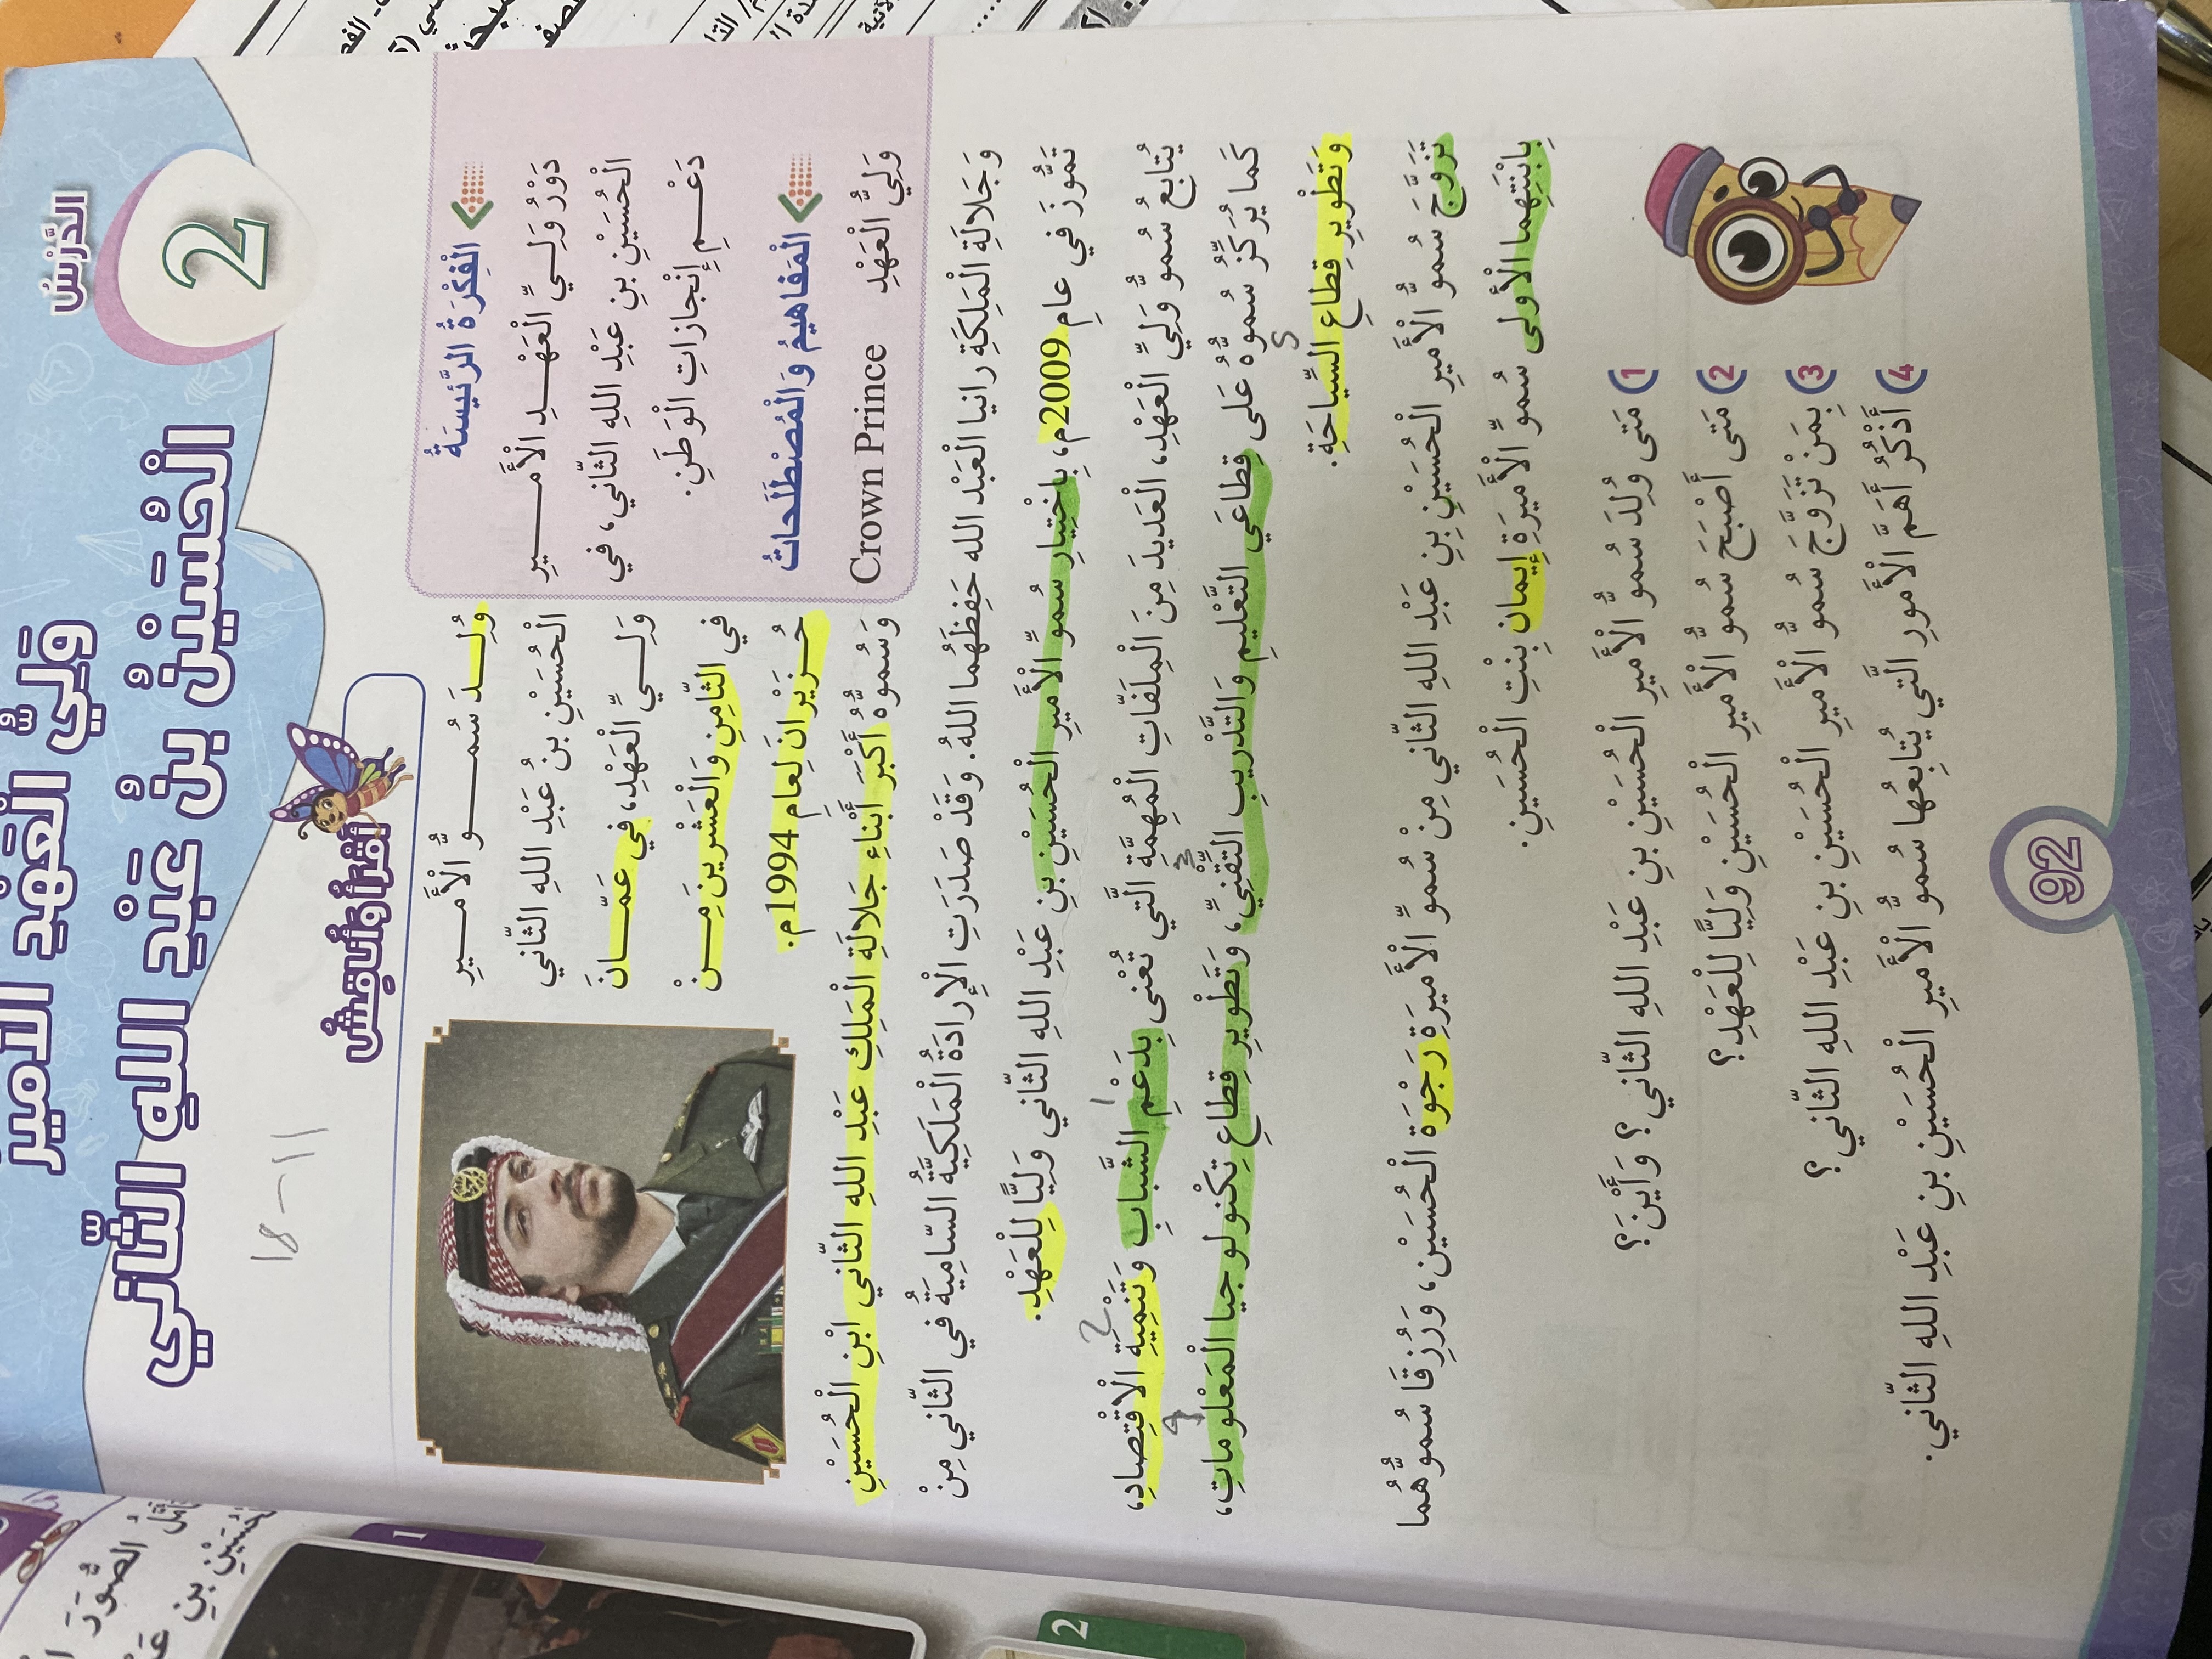 الدَّرْسُ
2
وَلِيُّ الْعَهْدِ الْأَمير
الْحُسَيْنُ بْنُ عَبْدِ اللهِ الثّاني
18-11
الْفِكْرَةُ الرَّئيسَةُ
دَوْرُ وَلِـيِّ الْعَهْـدِ الْأَمــــيرِ
الْحُسَيْنِ بنِ عَبْدِ اللهِ الثّاني، في
دَعْـــمِ إِنْجازاتِ الْوَطَنِ.
الْمَفاهيمُ وَالْمُصْطَلَحاتُ
وَلِيُّ الْعَهْدِ Crown Prince
أَقْرَأُ وَأُناقِشُ
وُلِـــدَ سُمـــــوُّ الْأَمـــيرِ
الْحُسَيْنِ بنُ عَبْدِ اللهِ الثّاني
وَلِـــيِّ الْعَهْدِ، في عَمّـــانَ
في الثّامِنِ وَالْعشْرينَ مِـــنْ
حُـــزَيْرانَ لِعامِ 1994م.
وَسُموُّهُ أَكْبَرُ أَبْناءِ جَلالَةِ الْمَلِكِ عَبْدِ اللهِ الثّاني ابْنِ الْحُسَيْنِ
وَجَلالَةِ الْمَلِكَةِ رانيا الْعَبْد الله حَفِظَهُما اللهُ. وَقَدْ صَدَرَتِ الْإِرادَةُ الْمَلَكِيَّةُ السّامِيَةُ في الثّاني مِنْ
تَمُّوزَ في عامِ 2009م، بِاخْتِيارِ سُموِّ الْأَميرِ الْحُسَيْنِ بنِ عَبْدِ اللهِ الثّاني وَلِيًّا لِلْعَهْدِ.
يُتابِعُ سُموُّ وَلِيِّ الْعَهْدِ، الْعَديدَ مِنَ الْمِلَفّاتِ الْمُهِمَّةِ الَّتي تُعْنى بِدَعْمِ الشَّبابِ وَتَنْمِيَةِ الْاقْتِصادِ،
1
2
كَما يُرَكِّزُ سُموُّهُ عَلى قِطاعَيِ التَّعْليمِ وَالتَّدْريبِ التِّقْنِيِّ، وَتَطْويرِ قِطاعِ تِكْنولوجيا الْمَعْلوماتِ،
3
4
وَتَطْويرِ قِطاعِ السِّياحَةِ.
5
تَزَوَّجَ سُموُّ الْأَميرِ الْحُسَيْنِ بنِ عَبْدِ اللهِ الثّاني مِنْ سُموِّ الْأَميرَةِ رَجْوَة الْحُسَيْن، وَرُزِقَا سُموُّهُما
بِابْنَتِهِما الْأولى سُموِّ الْأَميرَةِ إيمان بِنْتِ الْحُسَيْنِ.
1 مَتى وُلِدَ سُموُّ الْأَميرِ الْحُسَيْنِ بنِ عَبْدِ اللهِ الثّاني؟ وَأَيْنَ؟
2 مَتى أَصْبَحَ سُموُّ الْأَميرِ الْحُسَيْنِ وَلِيًّا لِلْعَهْدِ؟
3 بِمَنْ تَزَوَّجَ سُموُّ الْأَميرِ الْحُسَيْنِ بنِ عَبْدِ اللهِ الثّاني؟
4 أَذْكُرُ أَهَمَّ الْأُمورِ الَّتي يُتابِعُها سُموُّ الْأَميرِ الْحُسَيْنِ بنِ عَبْدِ اللهِ الثّاني.
92
1
2